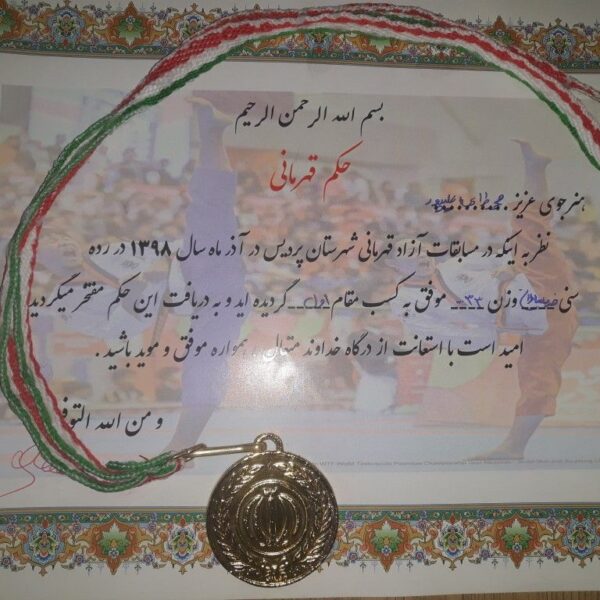 بسم الله الرحمن الرحیم
حکم قهرمانی
هنرجوی عزیز
نظر به اینکه در مسابقات آزاد قهرمانی شهرستان پردیس در آذر ماه سال ۱۳۹۸ در رده
سنی وزن ۳۳- موفق به کسب مقام اول گردیده اید و به دریافت این حکم مفتخر میگردید
امید است با استعانت از درگاه خداوند متعال ، همواره موفق و موید باشید .
و من الله التوفی
WTF World Taekwondo Poomsae Championship